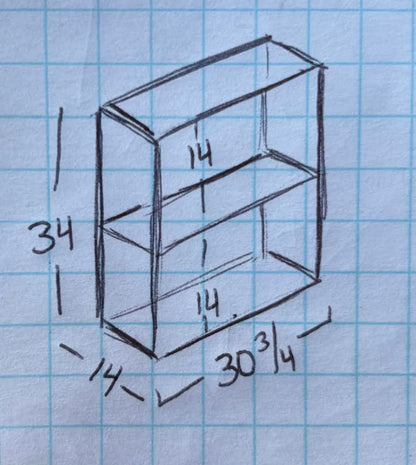 14
34
14
14
30 3/4